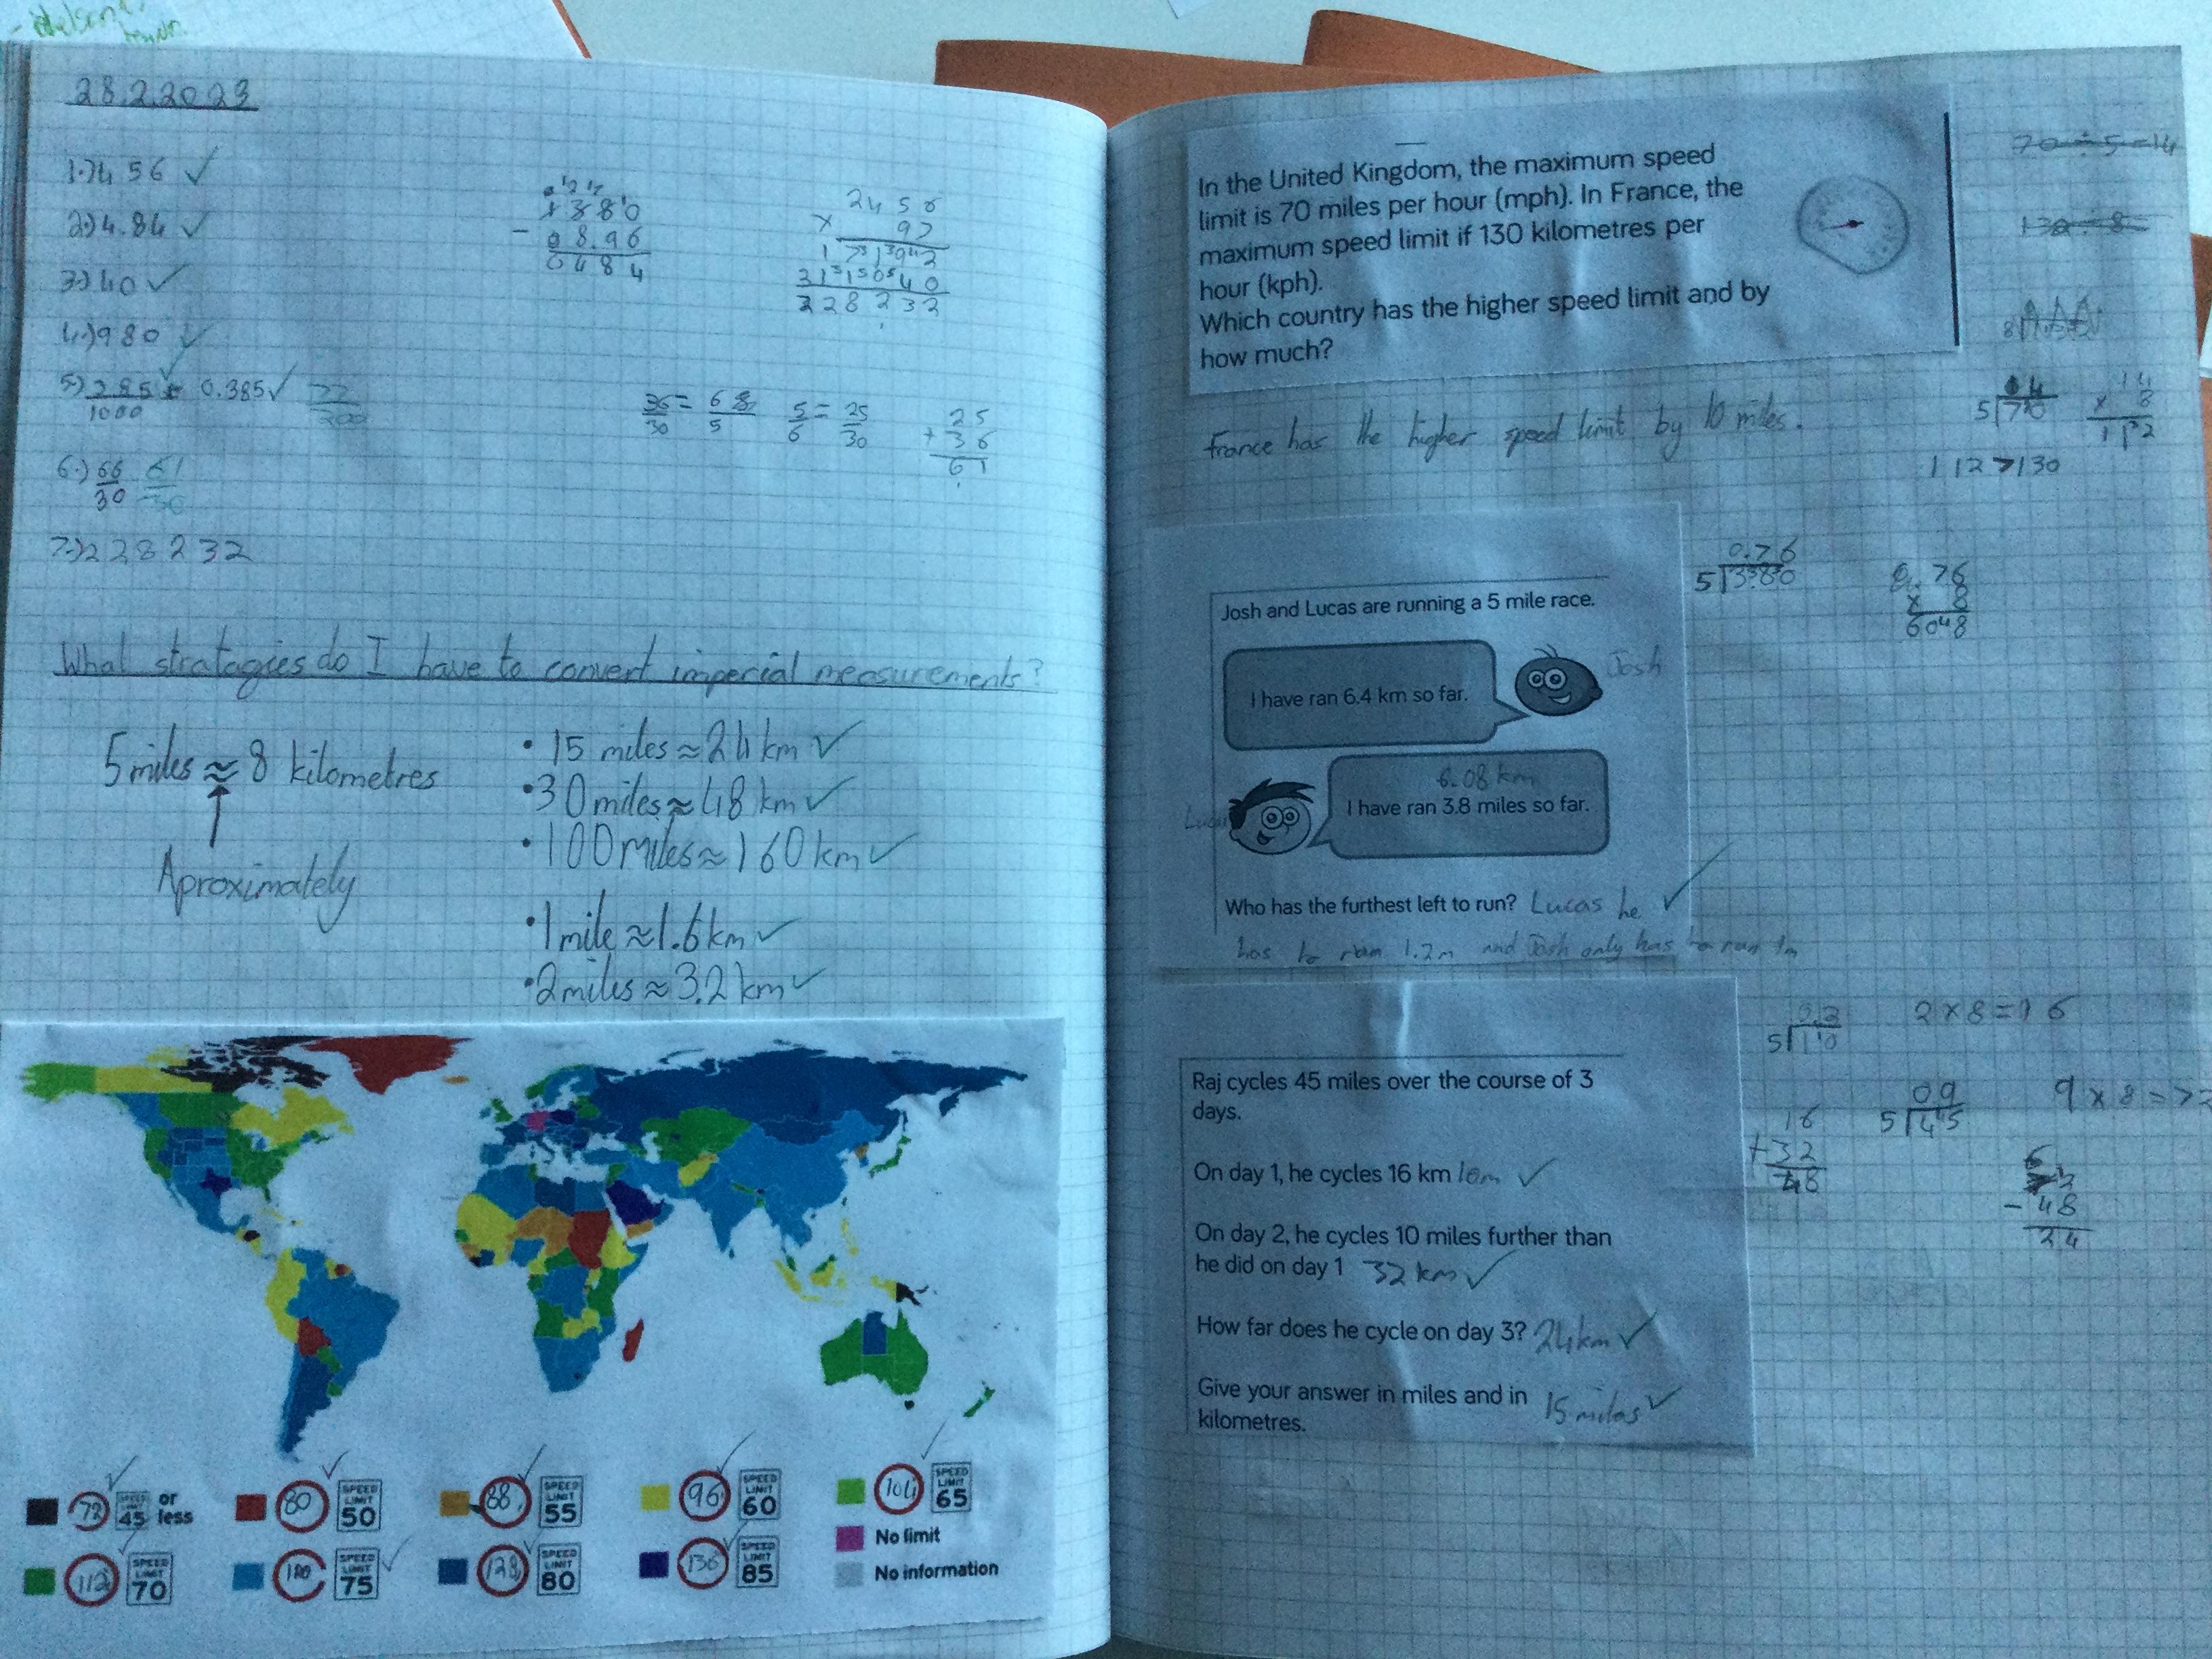 28.2.2023
1.) 456 ✓
2.) 4.84 ✓
3.) 40 ✓
4.) 980 ✓
5.) 385 0.385 ✓ 77
1000 200
6.) 66 61
30 30
7.) 228232
1380
- 8.96
6484
2456
× 97
17192
228232
36 = 6 5 = 25
30 5 6 30
25
+ 36
61
What stratagies do I have to convert imperial measurements?
5 miles ≈ 8 kilometres
Aproximately
• 15 miles ≈ 24 km ✓
• 30 miles ≈ 48 km ✓
• 100 miles ≈ 160 km ✓
• 1 mile ≈ 1.6 km ✓
• 2 miles ≈ 3.2 km ✓
72 SPEED LIMIT 45 or less
80 SPEED LIMIT 50
88 SPEED LIMIT 55
96 SPEED LIMIT 60
104 SPEED LIMIT 65
No limit
112 SPEED LIMIT 70
120 SPEED LIMIT 75
128 SPEED LIMIT 80
136 SPEED LIMIT 85
No information
In the United Kingdom, the maximum speed
limit is 70 miles per hour (mph). In France, the
maximum speed limit if 130 kilometres per
hour (kph).
Which country has the higher speed limit and by
how much?
70 ÷ 5 = 14
130 ÷ 8 =
France has the higher speed limit by 10 miles.
14
5 70
14
× 8
112
112 > 130
Josh and Lucas are running a 5 mile race.
I have ran 6.4 km so far.
Josh
6.08 km
I have ran 3.8 miles so far.
Who has the furthest left to run? Lucas he ✓
has to run 1.2m and Josh only has to run 1m
0.76
5 3.80
0.76
× 8
6048
Raj cycles 45 miles over the course of 3
days.
On day 1, he cycles 16 km 10m ✓
On day 2, he cycles 10 miles further than
he did on day 1 32 km ✓
How far does he cycle on day 3? 24km ✓
Give your answer in miles and in 15 miles ✓
kilometres.
2 × 8 = 16
16
+ 32
48
09
5 45
9 × 8 = 72
- 48
24